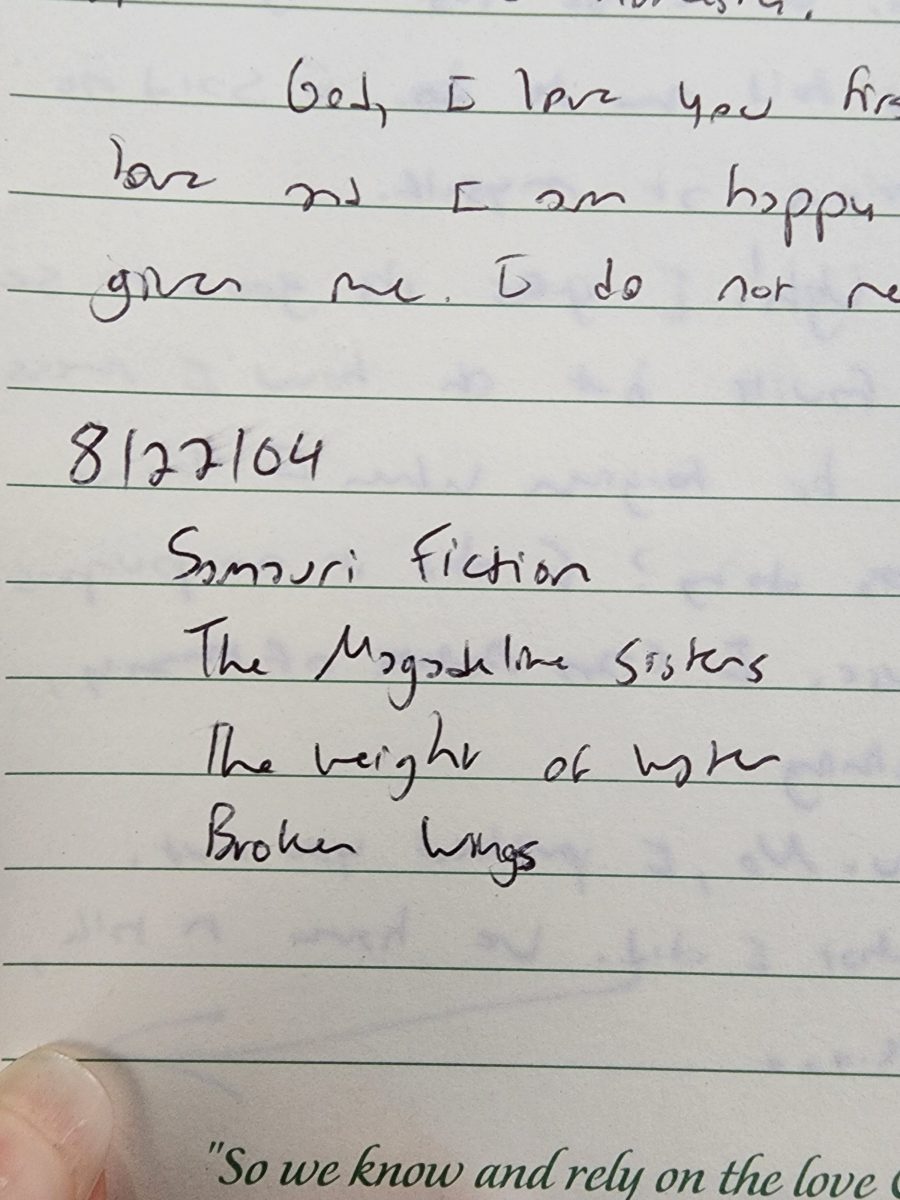 God, I love you
love and I am happy
given me. I do not
8/22/04
Samauri Fiction
The Magadeline Sisters
The weight of water
Broken Wings
"So we know and rely on the love